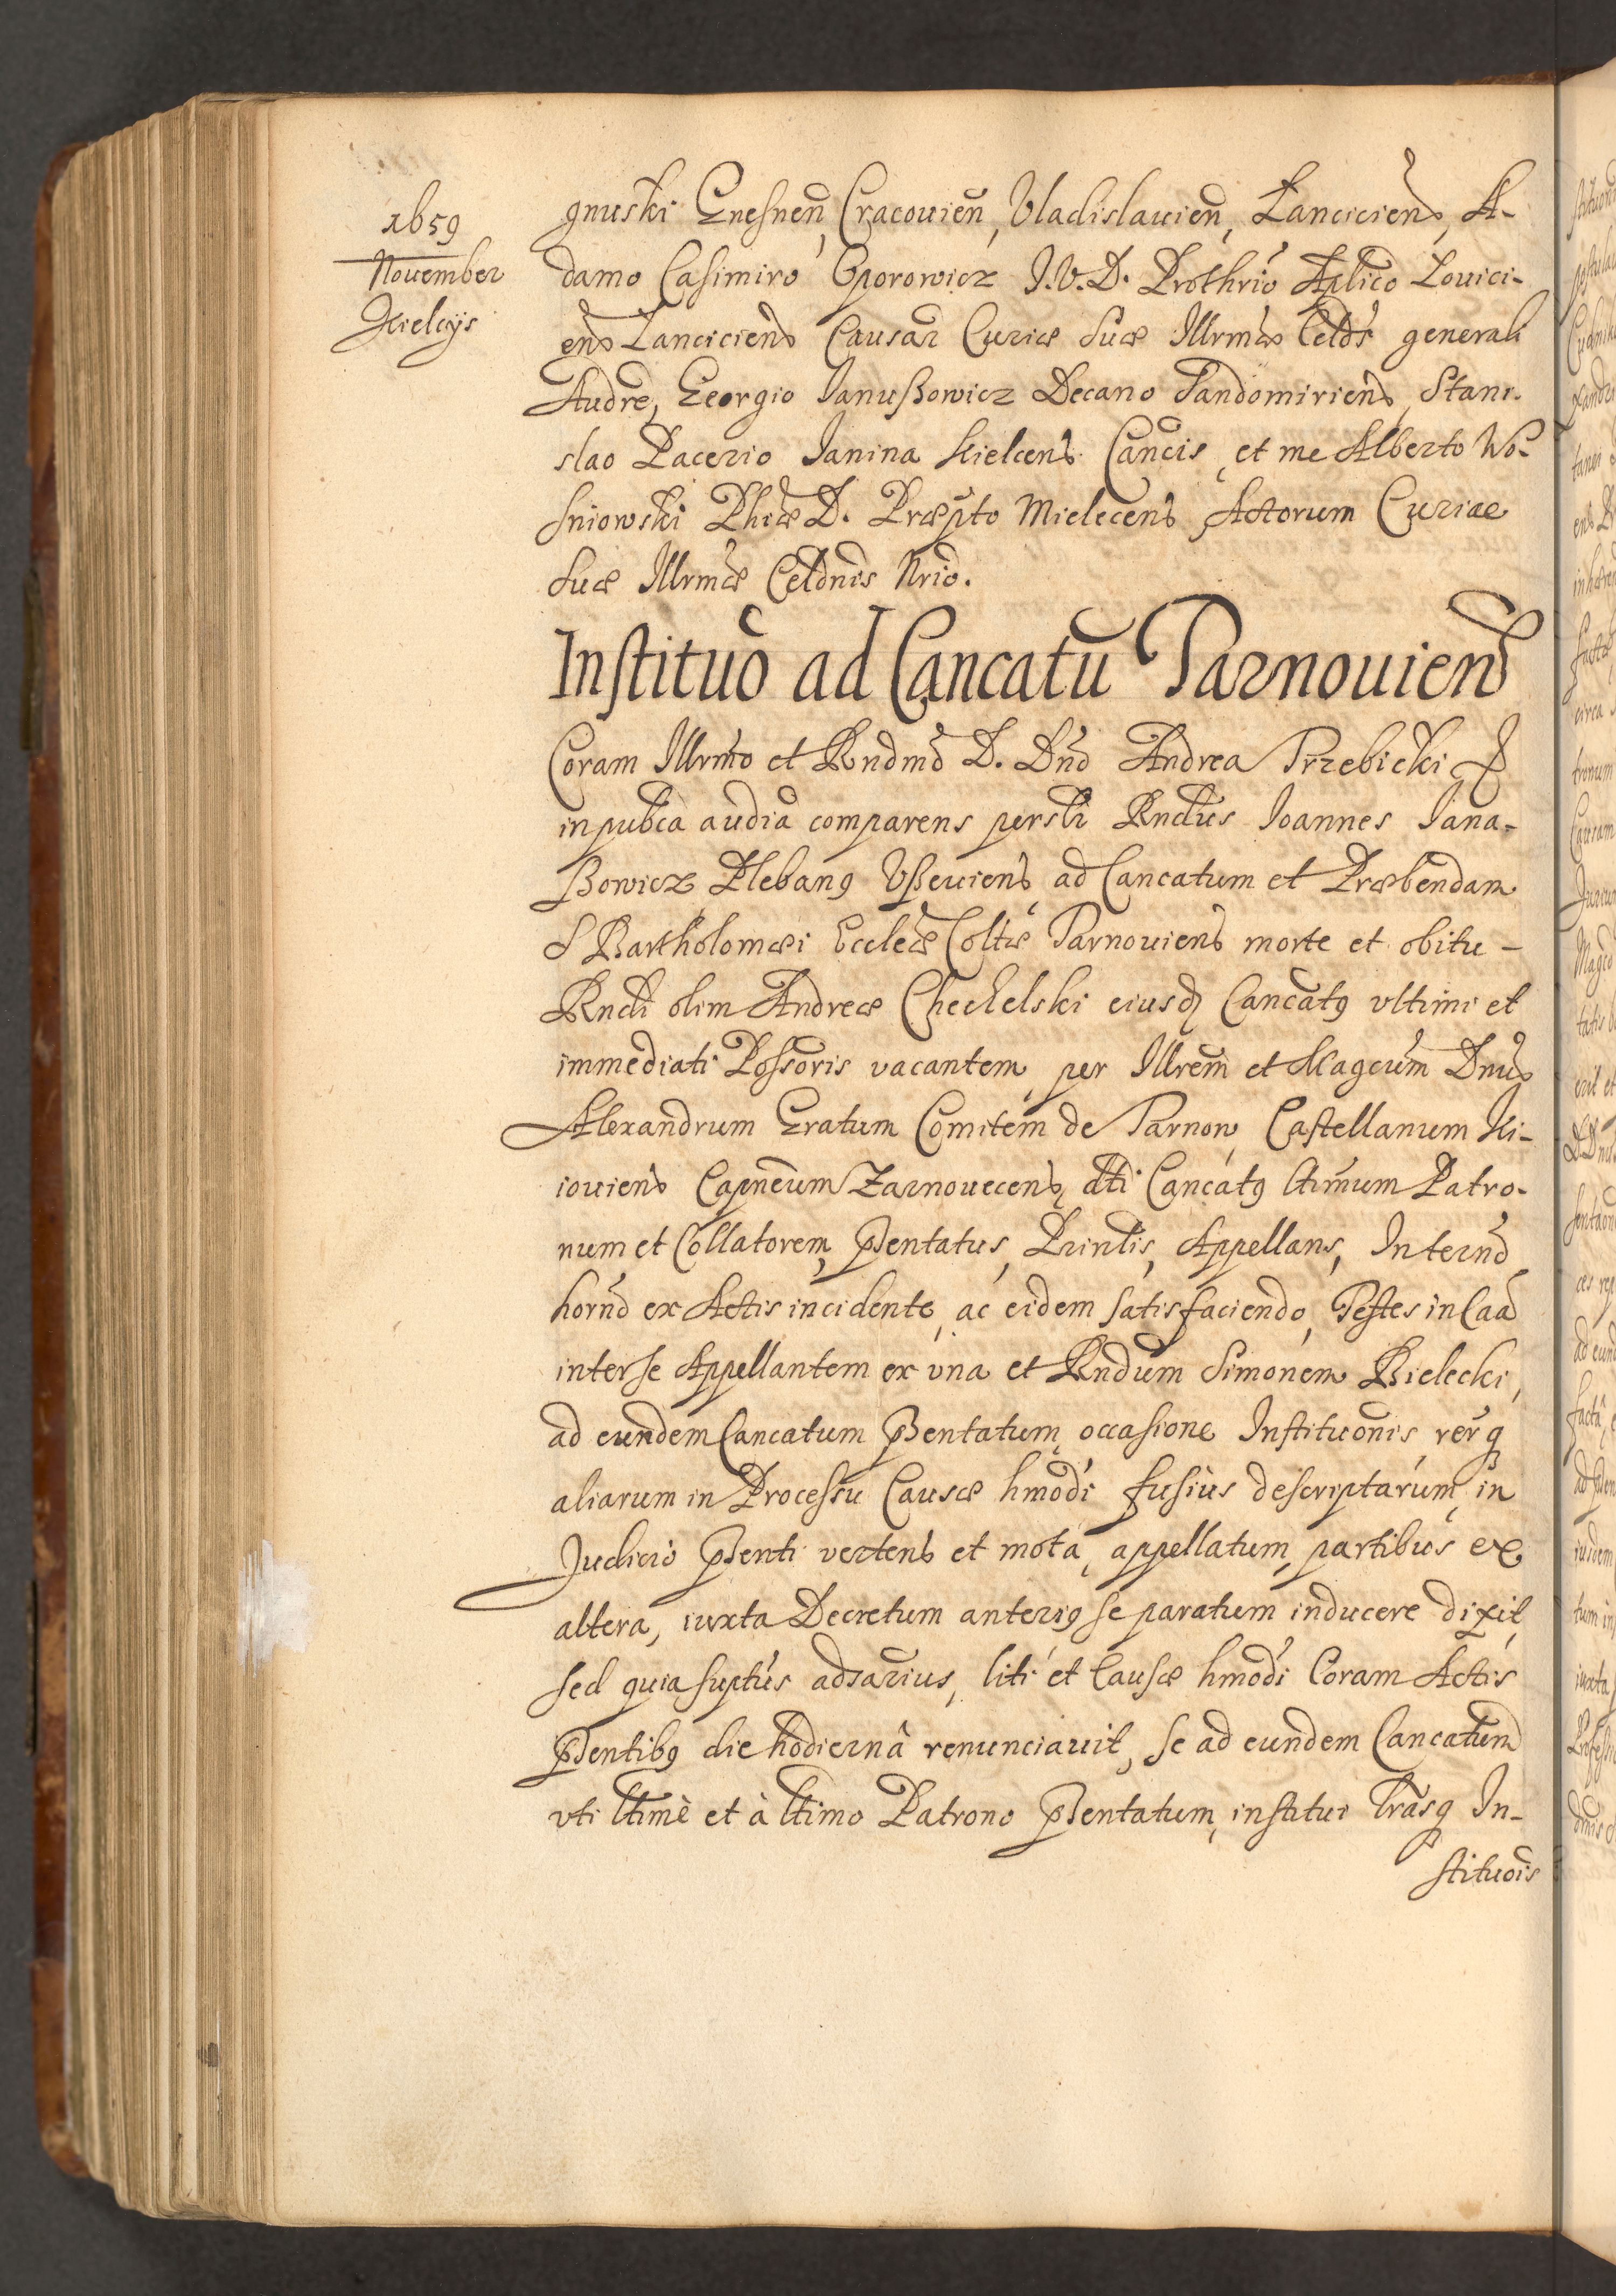 1659
November
Kielcys
gnuski Gnesnen, Cracovien, Vladislavien, Lanciciens, A-
damo Casimiro Oporowicz J.V.D. Prothrio Aplico Lovici-
ens Lanciciens Causar Curiæ Suæ Illrmæ Celds generali
Audre, Georgio Janußowicz Decano Sandomiriens, Stani-
slao Pacerio Janina Kielcens Cancis, et me Alberto Wo-
sniowski Phiæ D. Præpto Mielecens Actorum Curiae
Suæ Illrmæ Celdnis Nrio.
Instituo ad Cancatu Tarnoviens
Coram Illrmo et Rndmo D. Dno Andrea Trzebicki
in pubca audia comparens persli Rndus Joannes Jana-
ßowicz Plebang Vßeviens, ad Cancatum et Præbendam
S Bartholomæi Eccleæ Coltæ Tarnoviens morte et obitu -
Rndi olim Andreæ Chechelski eiusdq Cancatg vltimi et
immediati Possoris vacantem, per Illrem et Magcum Dnus
Alexandrum Gratum Comitem de Tarnow, Castellanum Ki-
ioviens Capneum Zarnovecens, dti Cancatg ltimum Patro-
num et Collatorem, Psentatus, Prinlis, Appellans, In termo
horno ex Actis incidente, ac eidem satisfaciendo, Testes in Caa
inter se Appellantem ex vna et Rndum Simonem Bielecki,
ad eundem Cancatum Psentatum, occasione Institvonis rerq
aliarum in Processu Causæ hmodi fusius descriptarum, in
Judicio Psenti vertens et mota, appellatum, partibus ex
altera, iuxta Decretum anterig se paratum inducere dixit,
sed quia suptus adsarius, liti et Causæ hmodi Coram Actis
Psentibg die hodierna renunciavit, se ad eundem Cancatum
vti ltimè et à ltimo Patrono Psentatum, institui lrasq In-
stituois